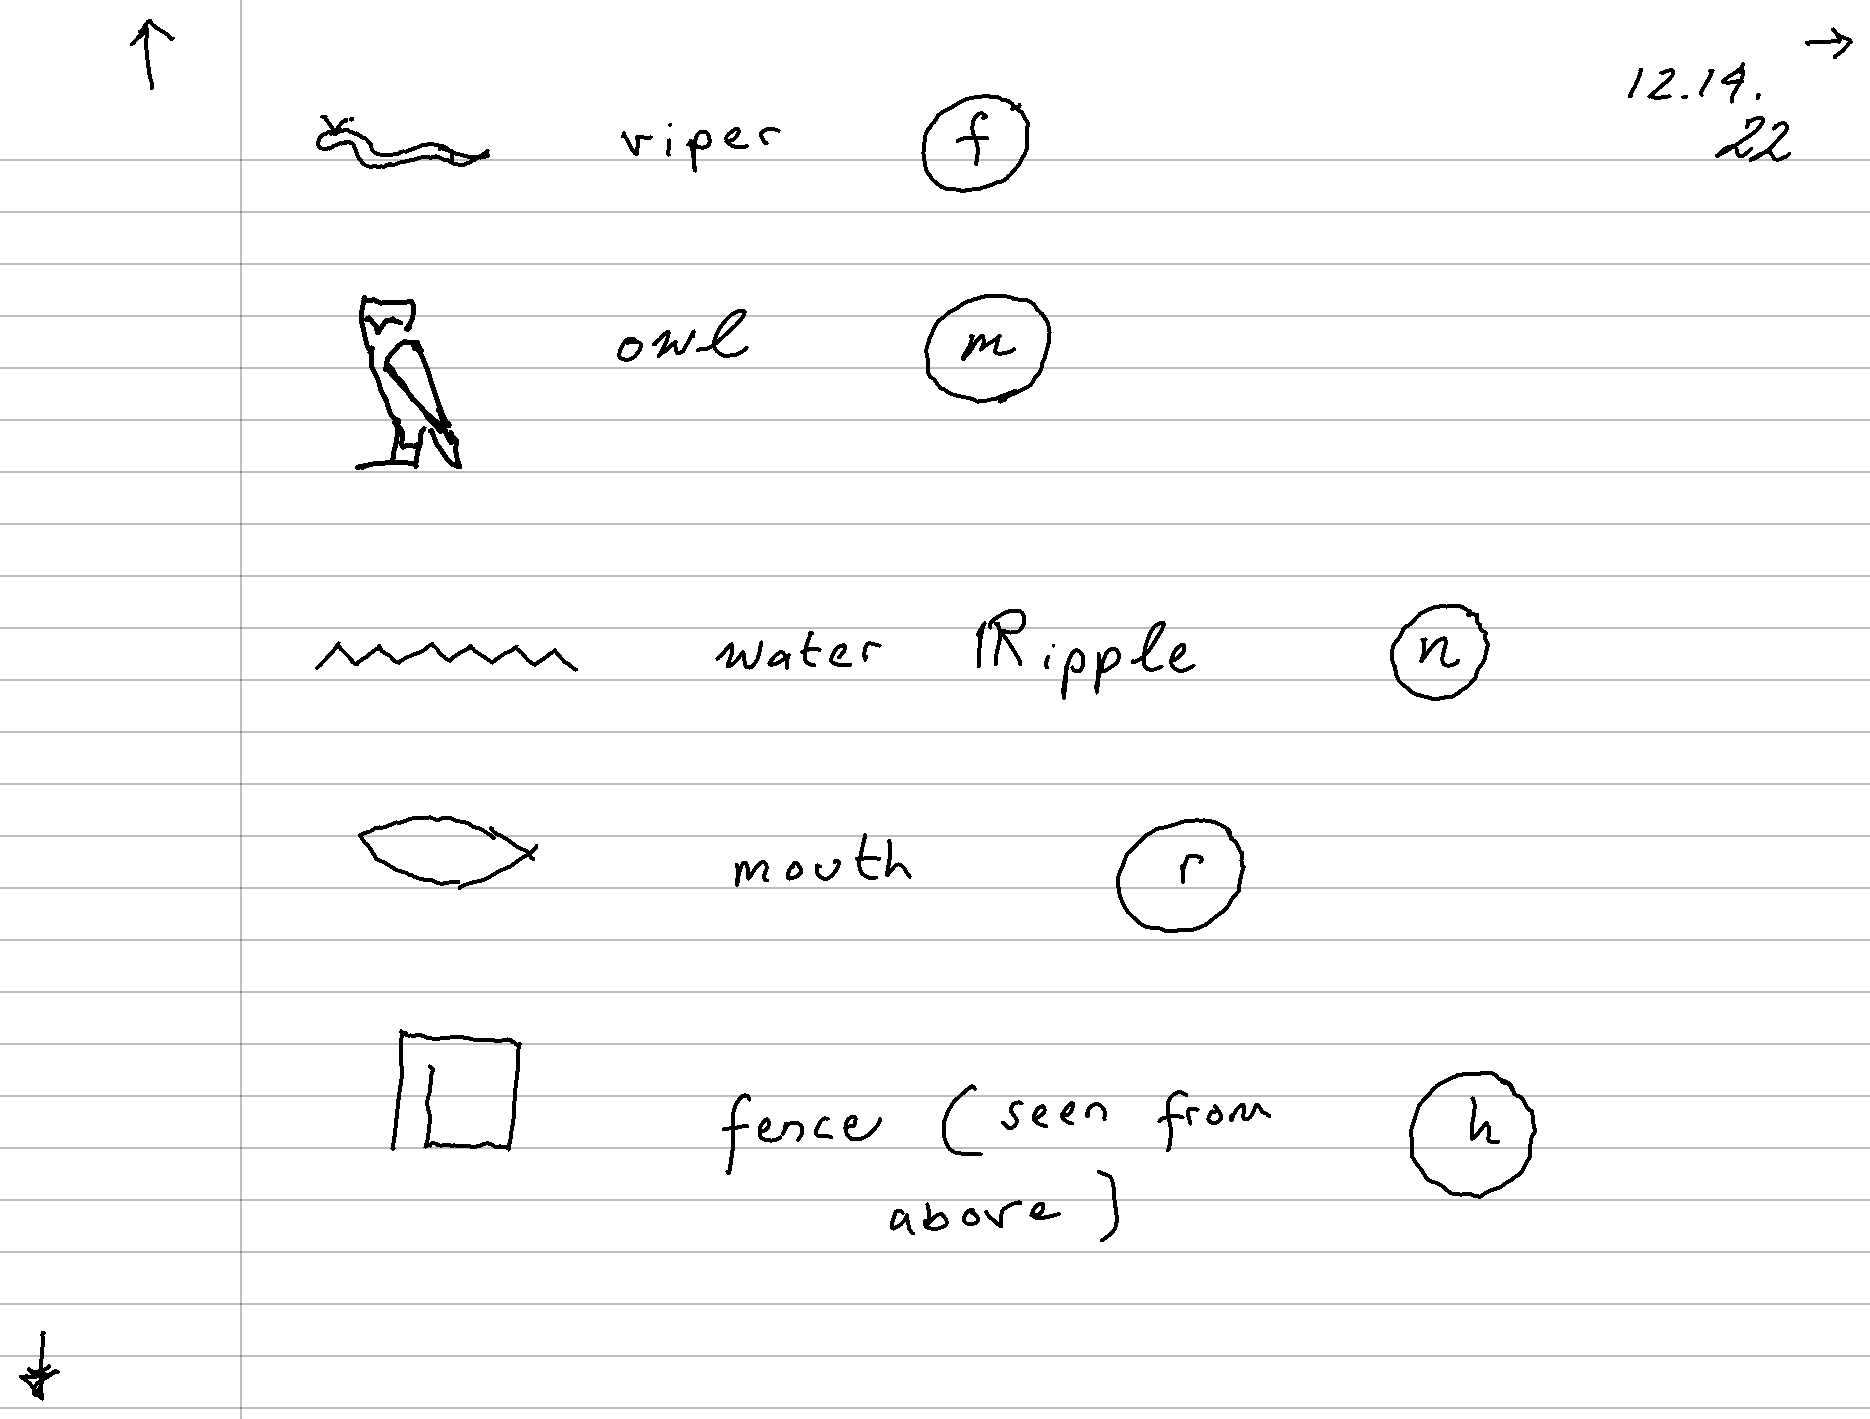 12.14.
22
viper f
owl m
water Ripple n
mouth r
fence (seen from h
above)